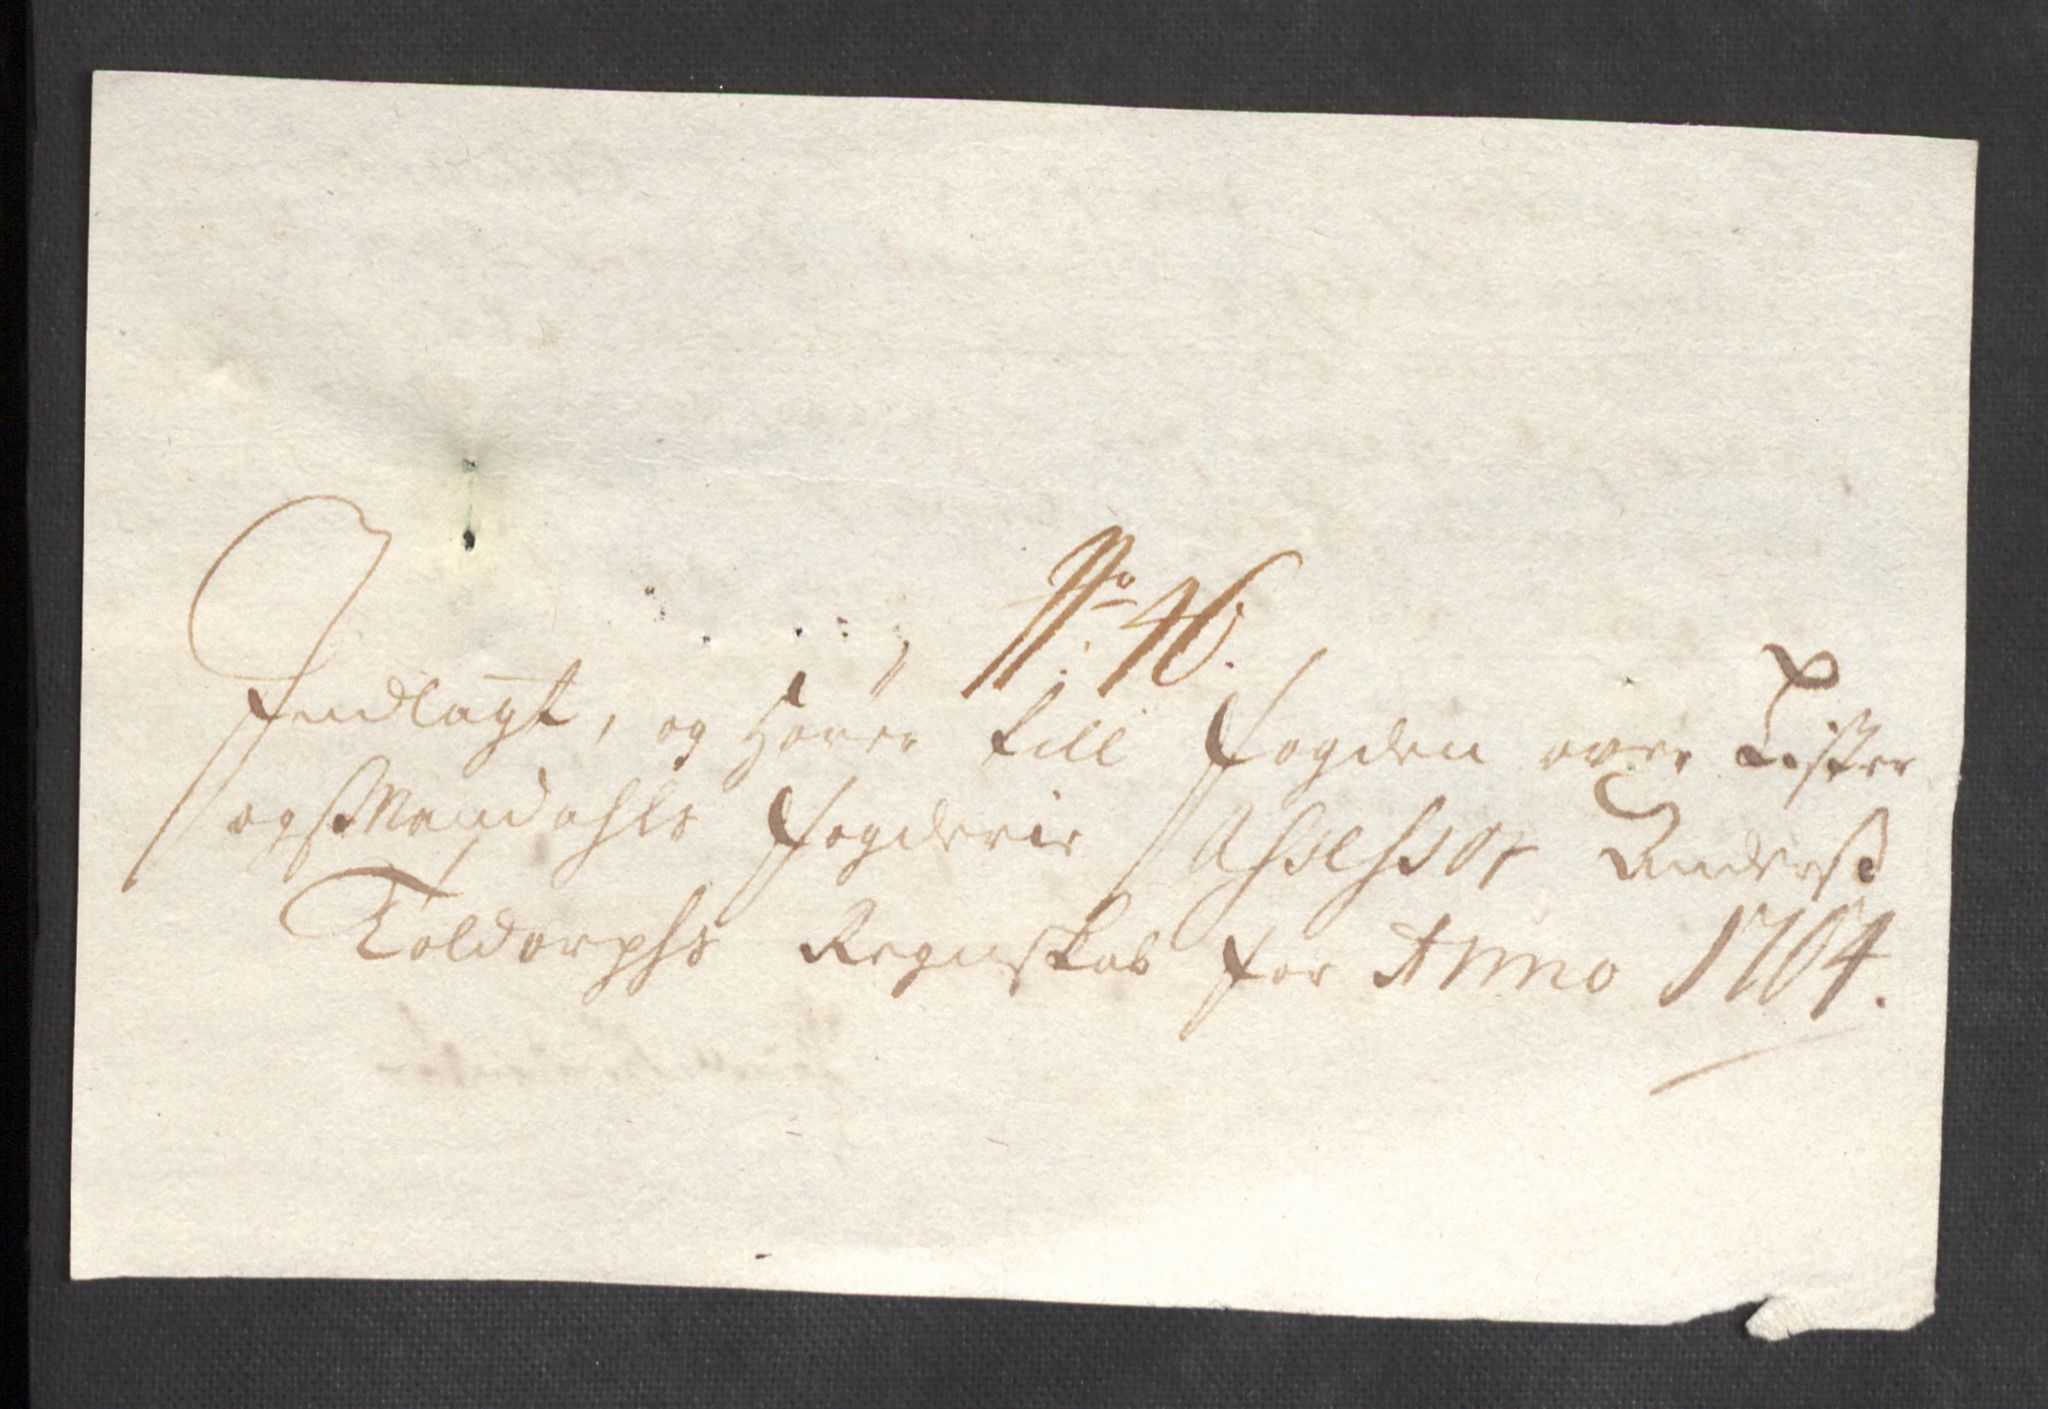 No: 46.
Indlagt, og Hörer till Fogden over Lister
og Mandahls Fogderie Assessor Anderß
Toldorphs Regnskab for Anno 1704.